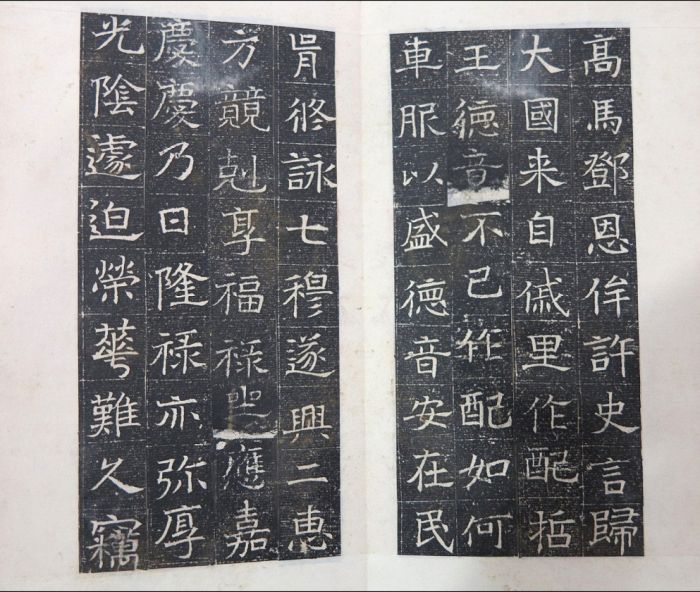 高馬鄧恩侔許史言歸
大國来自戚里作配哲
王德音不已作配如何
車服以盛德音安在民
胥攸詠七穆遂興二惠
方競剋享福禄 應嘉
慶慶乃日隆禄亦弥厚
光陰遽迫榮華難久窮